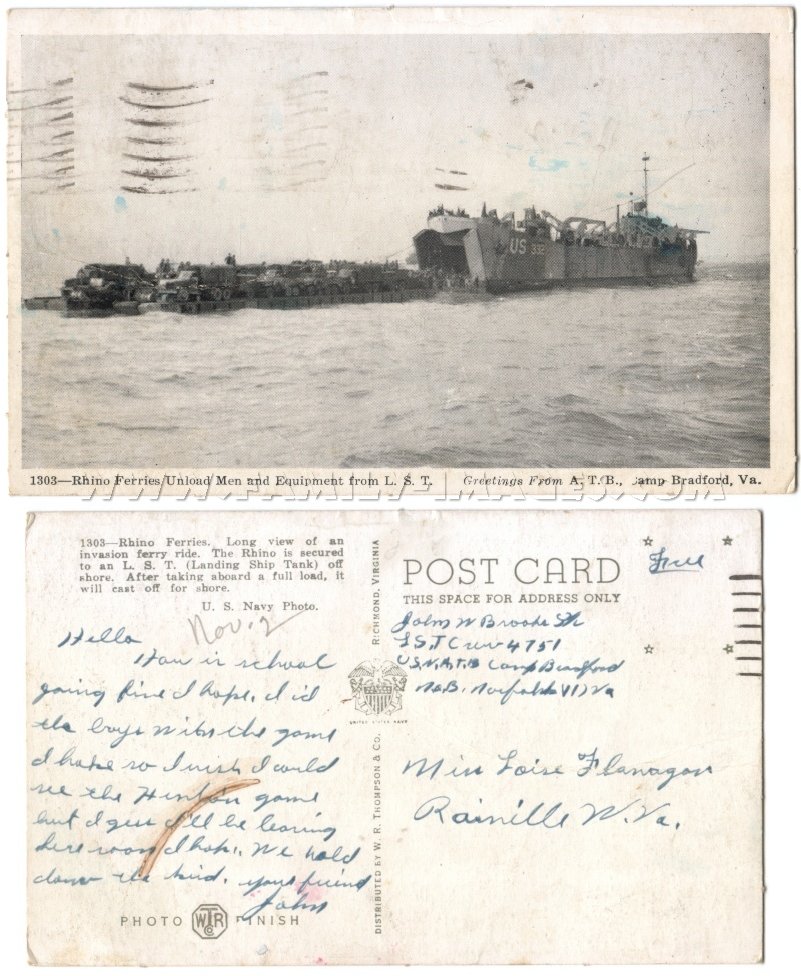 US
1303—Rhino Ferries Unload Men and Equipment from L. S. T. Greetings From A. T. B., Camp Bradford, Va.
WWW.FAMILY-IMAGES.COM
1303—Rhino Ferries. Long view of an
invasion ferry ride. The Rhino is secured
to an L. S. T. (Landing Ship Tank) off
shore. After taking aboard a full load, it
will cast off for shore.
U. S. Navy Photo.
Nov. 2
Hello
How is school
going fine I hope. Did
the boys win the game
I hope so I wish I could
see the Hinton game
but I guess I'll be leaving
here soon I hope. We hold
down the
your friend
John
PHOTO WTR CO FINISH
RICHMOND, VIRGINIA
UNITED STATES NAVY
DISTRIBUTED BY W. R. THOMPSON & CO.
POST CARD
THIS SPACE FOR ADDRESS ONLY
Free
John W Brooks
L.S.T Crew 4751
U.S.N.A.T.B Camp Bradford
N.O.B. Norfolk 11 Va
Miss Loise Flanagan
Rainille W.Va.